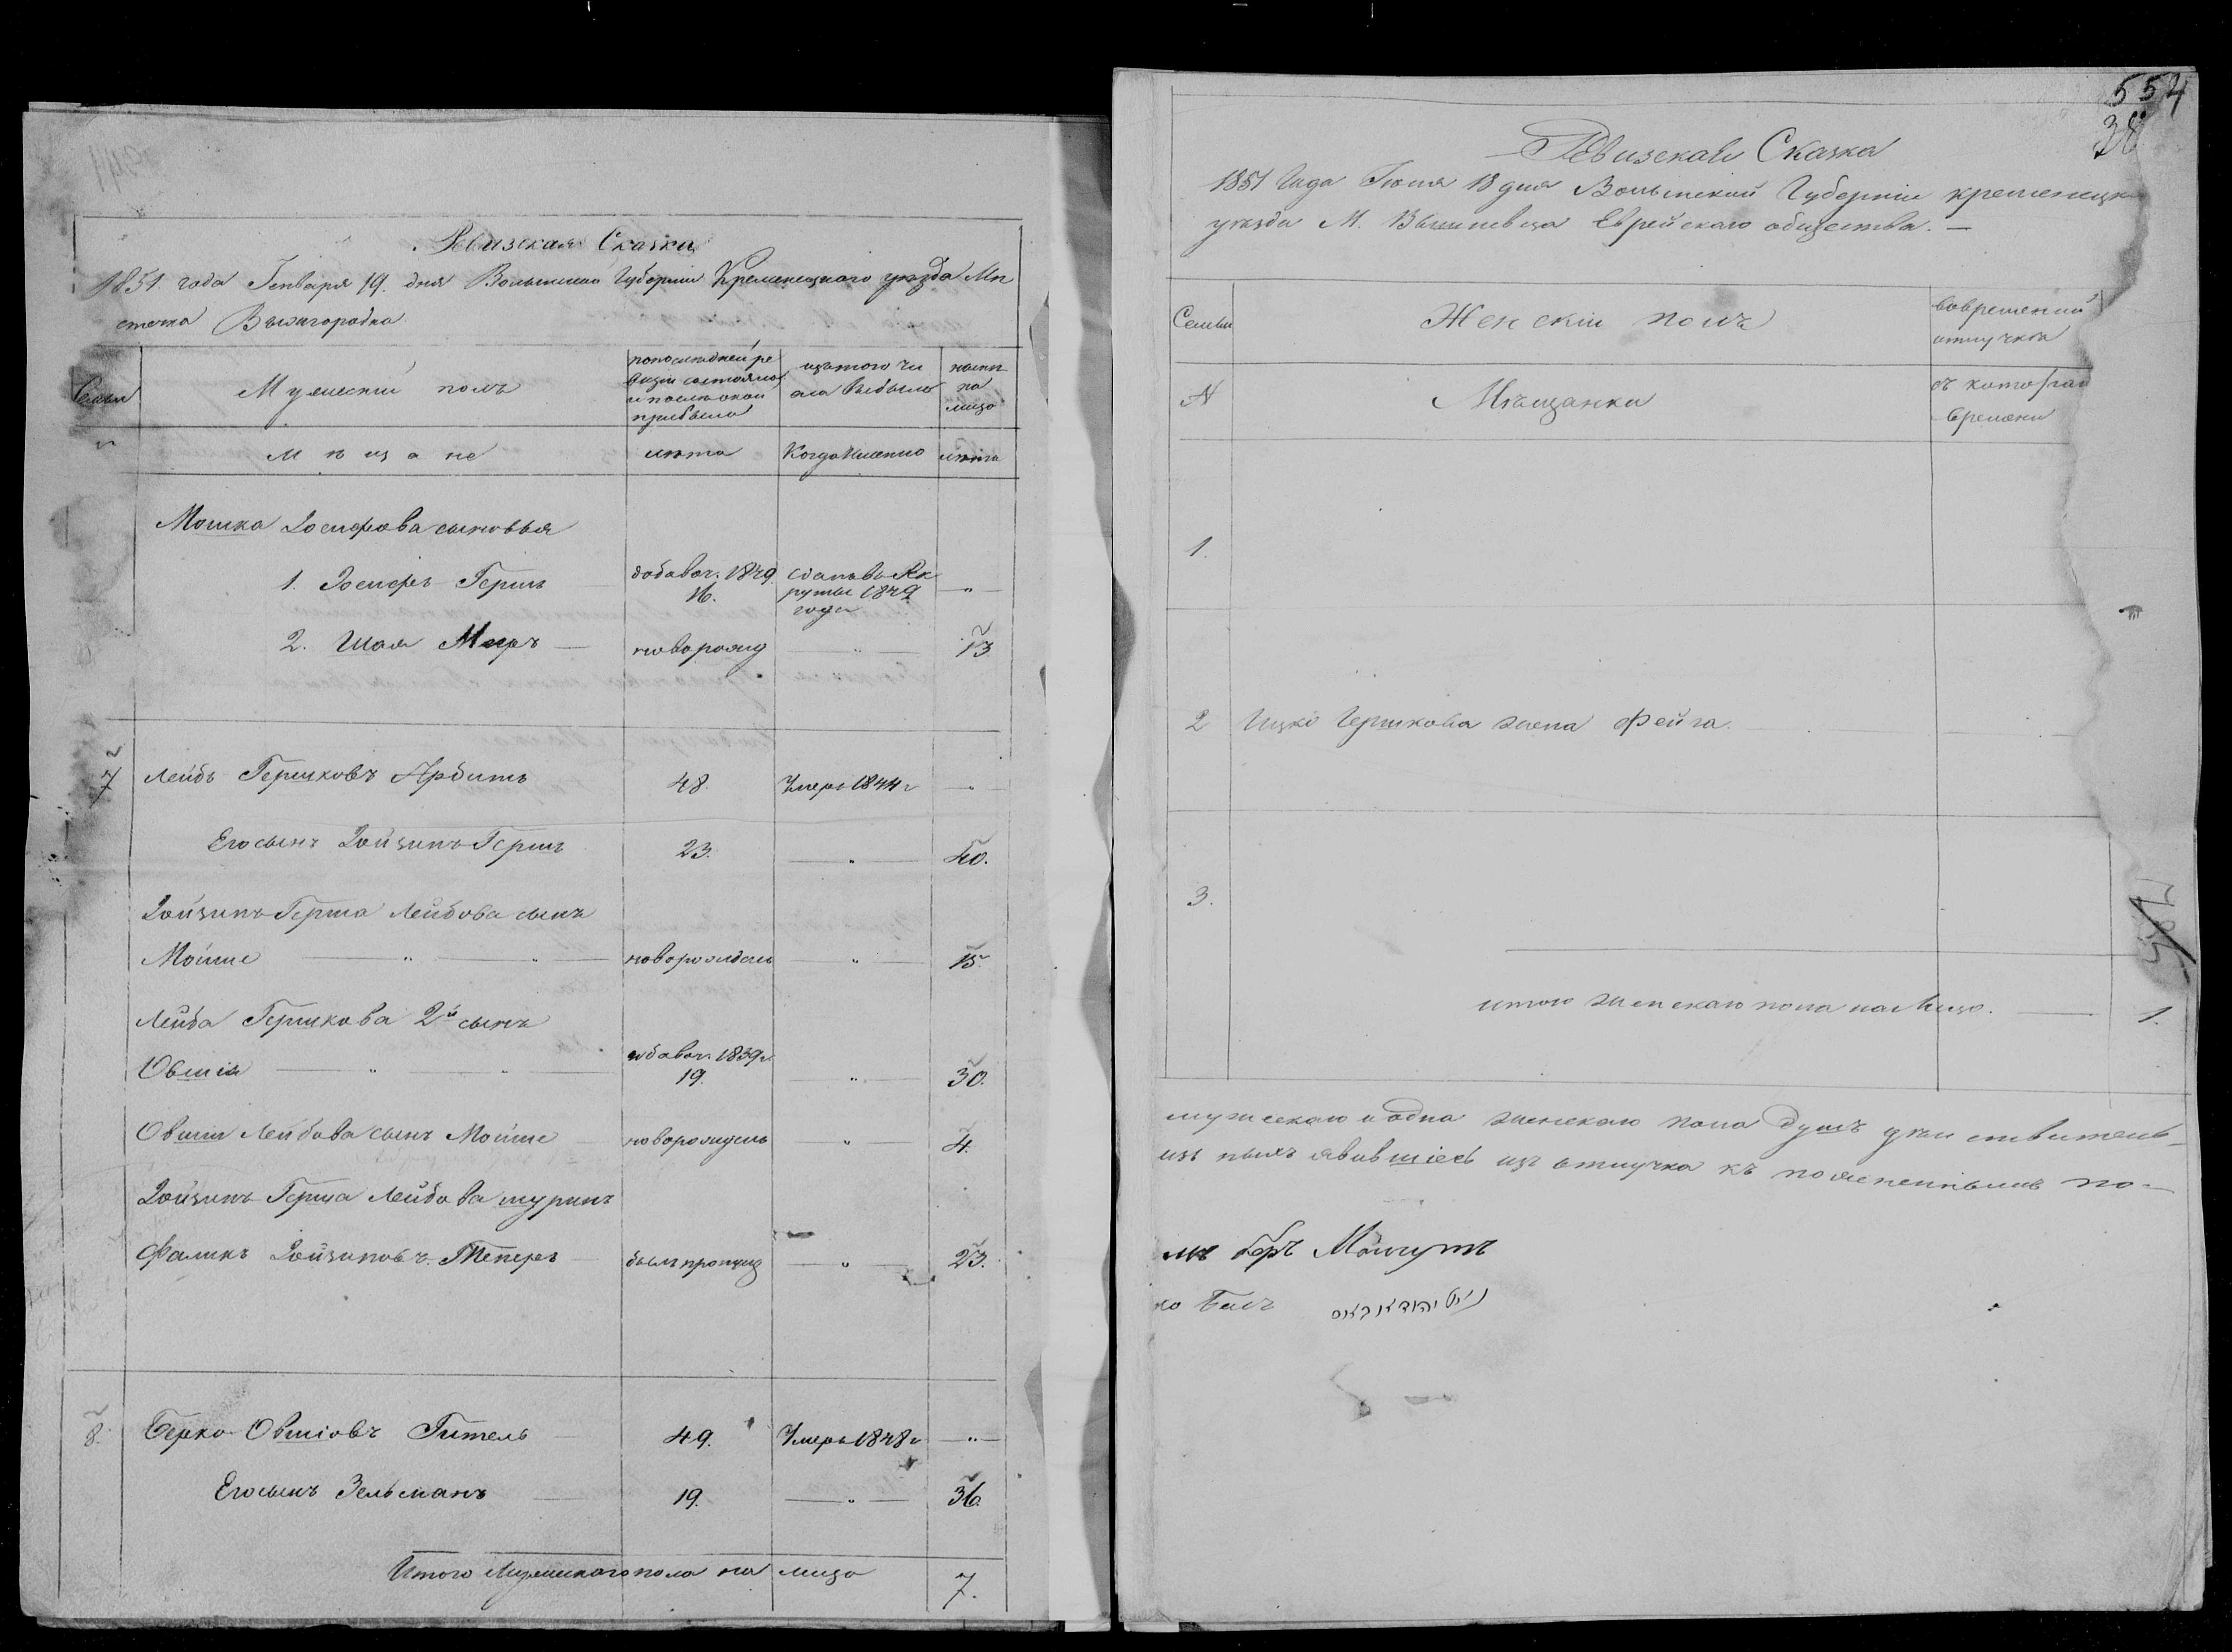 Ревизская Сказка
1851 года Генваря 19. дня Волынской Губерніи Кременецкаго уезда Мѣ
стечка Вышгородка
Семьи
Мужескій полъ
по последней ре
визіи состояло
и после оной
прибыло
изъ того чи
сла выбыло
ныне
на
лицо
Мѣщане
лѣта
Когда именно
лѣта
Мошка Іосифова сыновья
1. Іосифъ Гершъ
добавоч. 1849
16.
сданъ въ Рек
руты 1849
года
"
2. Шая Мееръ
новорожд
"
13
7
Лейбъ Гершковъ Арбитъ
48.
Умеръ 1844 г
"
Его сынъ Зойзипъ Гершъ
23.
"
40.
Зойзипъ Герша Лейбова сынъ
Мойше
новорожденъ
"
15.
Лейба Гершкова 2й сынъ
Овшія
добавоч. 1839 г.
19.
"
30.
Овшіи Лейбова сынъ Мойше
новорожденъ
"
4.
Зойзипъ Герша Лейбова шуринъ
Фаликъ Зойзиповъ Теперъ
былъ пропущ
"
23.
8.
Берко Овшіовъ Гитель
49.
Умеръ 1848 г
"
Его сынъ Зельманъ
19.
"
36.
Итого Мужескаго пола на лицо
7.
554
38
Ревизская Сказка
1851 Года Іюня 18 дня Волынской Губерніи кременецка
уезда М. Вышневца Еврейскаго общества.
Семьи
Женскій полъ
во временной
отлучке
№
Мѣщанки
съ котораго
времени
1.
2
Ицко Гершкова жена Фейга.
3.
итого женскаго пола на лицо.
1.
мужескаго и одна женскаго пола душъ действитель-
изъ нихъ явившіесь изъ отлучка къ
Беръ